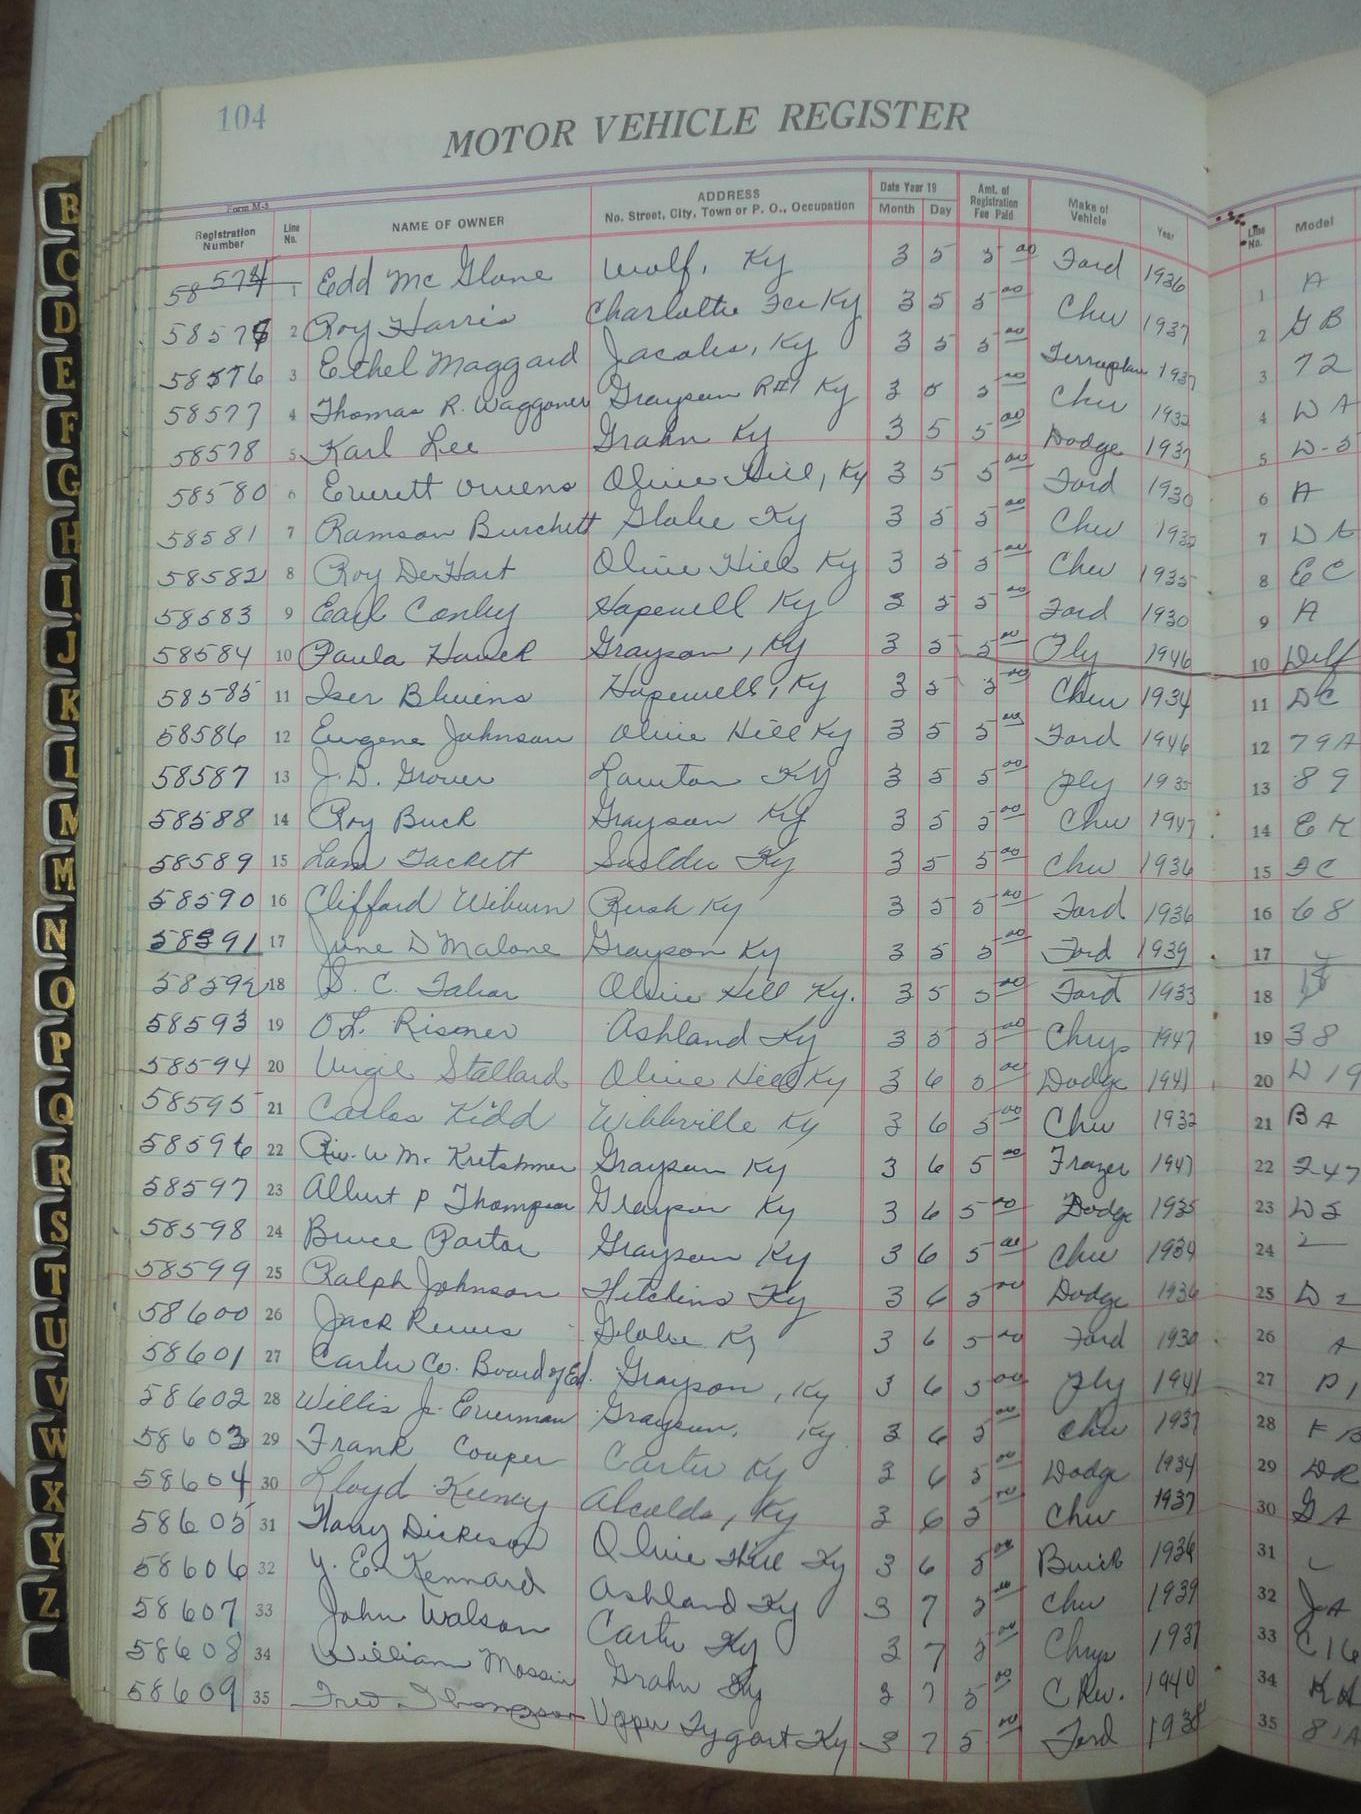 104
MOTOR VEHICLE REGISTER
Form M-5
Registration Number Line No. NAME OF OWNER ADDRESS No. Street, City, Town or P. O., Occupation Date Year 19 Month Day Amt. of Registration Fee Paid Make of Vehicle Year Line No. Model
58574 1 Edd Mc Glone Wolf, Ky 3 5 5 00 Ford 1936 1 A
58575 2 Roy Harris Charlotte Fce Ky 3 5 5 00 Chev 1937 2 GB
58576 3 Ethel Maggard Jacobs, Ky 3 5 5 00 Terraplane 1937 3 72
58577 4 Thomas R. Waggoner Grayson R#1 Ky 3 5 5 00 Chev 1932 4 DA
58578 5 Karl Lee Grahn Ky 3 5 5 00 Dodge 1937 5 D-5
58580 6 Everett Owens Olive Hill, Ky 3 5 5 00 Ford 1930 6 A
58581 7 Ramson Burchett Globe Ky 3 5 5 00 Chev 1932 7 DA
58582 8 Roy DeHart Olive Hill Ky 3 5 5 00 Chev 1935 8 EC
58583 9 Earl Conley Hopewell Ky 3 5 5 00 Ford 1930 9 A
58584 10 Paula Houck Grayson, Ky 3 5 5 00 Ply 1946 10
58585 11 Iser Blevins Hopewell, Ky 3 5 5 00 Chev 1934 11 DC
58586 12 Eugene Johnson Olive Hill Ky 3 5 5 00 Ford 1946 12 79A
58587 13 J. D. Grover Lawton Ky 3 5 5 00 Ply 1935 13 89
58588 14 Roy Buck Grayson Ky 3 5 5 00 Chev 1947 14 EK
58589 15 Tackett Ky 3 5 5 00 Chev 1936 15 FC
58590 16 Clifford Wilburn Rush Ky 3 5 5 00 Ford 1936 16 68
58591 17 June D Malone Grayson Ky 3 5 5 00 Ford 1939 17
58592 18 S. C. Tabor Olive Hill Ky. 3 5 5 00 Ford 1933 18
58593 19 O. L. Risner Ashland Ky 3 5 5 00 Chrys 1947 19 38
58594 20 Virgie Stallard Olive Hill Ky 3 6 5 00 Dodge 1941 20 D19
58595 21 Carlos Kidd Webbville Ky 3 6 5 00 Chev 1932 21 BA
58596 22 Rev. W. M. Kretshmer Grayson Ky 3 6 5 00 Frazer 1947 22 247
58597 23 Albert P Thompson Grayson Ky 3 6 5 00 Dodge 1935 23 D5
58598 24 Bruce Porter Grayson Ky 3 6 5 00 Chev 1934 24
58599 25 Ralph Johnson Hitchins Ky 3 6 5 00 Dodge 1936 25 D2
58600 26 Jack Reeves Globe Ky 3 6 5 00 Ford 1930 26 A
58601 27 Carter Co. Board of Ed. Grayson, Ky 3 6 5 00 Ply 1941 27 P1
58602 28 Willis Jr. Everman Grayson, Ky 3 6 5 00 Chev 1937 28
58603 29 Frank Cooper Carter Ky 3 6 5 00 Dodge 1934 29 DR
58604 30 Lloyd Keeney Ky 3 6 5 00 Chev 1937 30 GA
58605 31 Harry Dickison Olive Hill Ky 3 6 5 00 Buick 1936 31
58606 32 Y. E. Kennard Ashland Ky 3 7 5 00 Chev 1939 32 JA
58607 33 John Walson Carter Ky 3 7 5 00 Chrys 1937 33 C16
58608 34 William Grahn Ky 3 7 5 00 Chev. 1940 34 KH
58609 35 Fred Thompson Upper Tygart Ky 3 7 5 00 Ford 1938 35 81A
B
C
D
E
F
G
H
I
J
K
L
M
M
N
O
P
Q
R
S
T
U
V
W
X
Y
Z